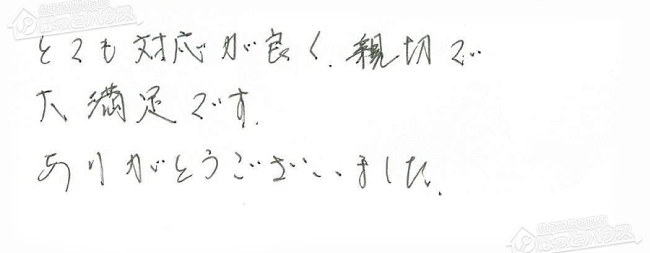 とても対応が良く、親切で
大満足です。
ありがとうございました。